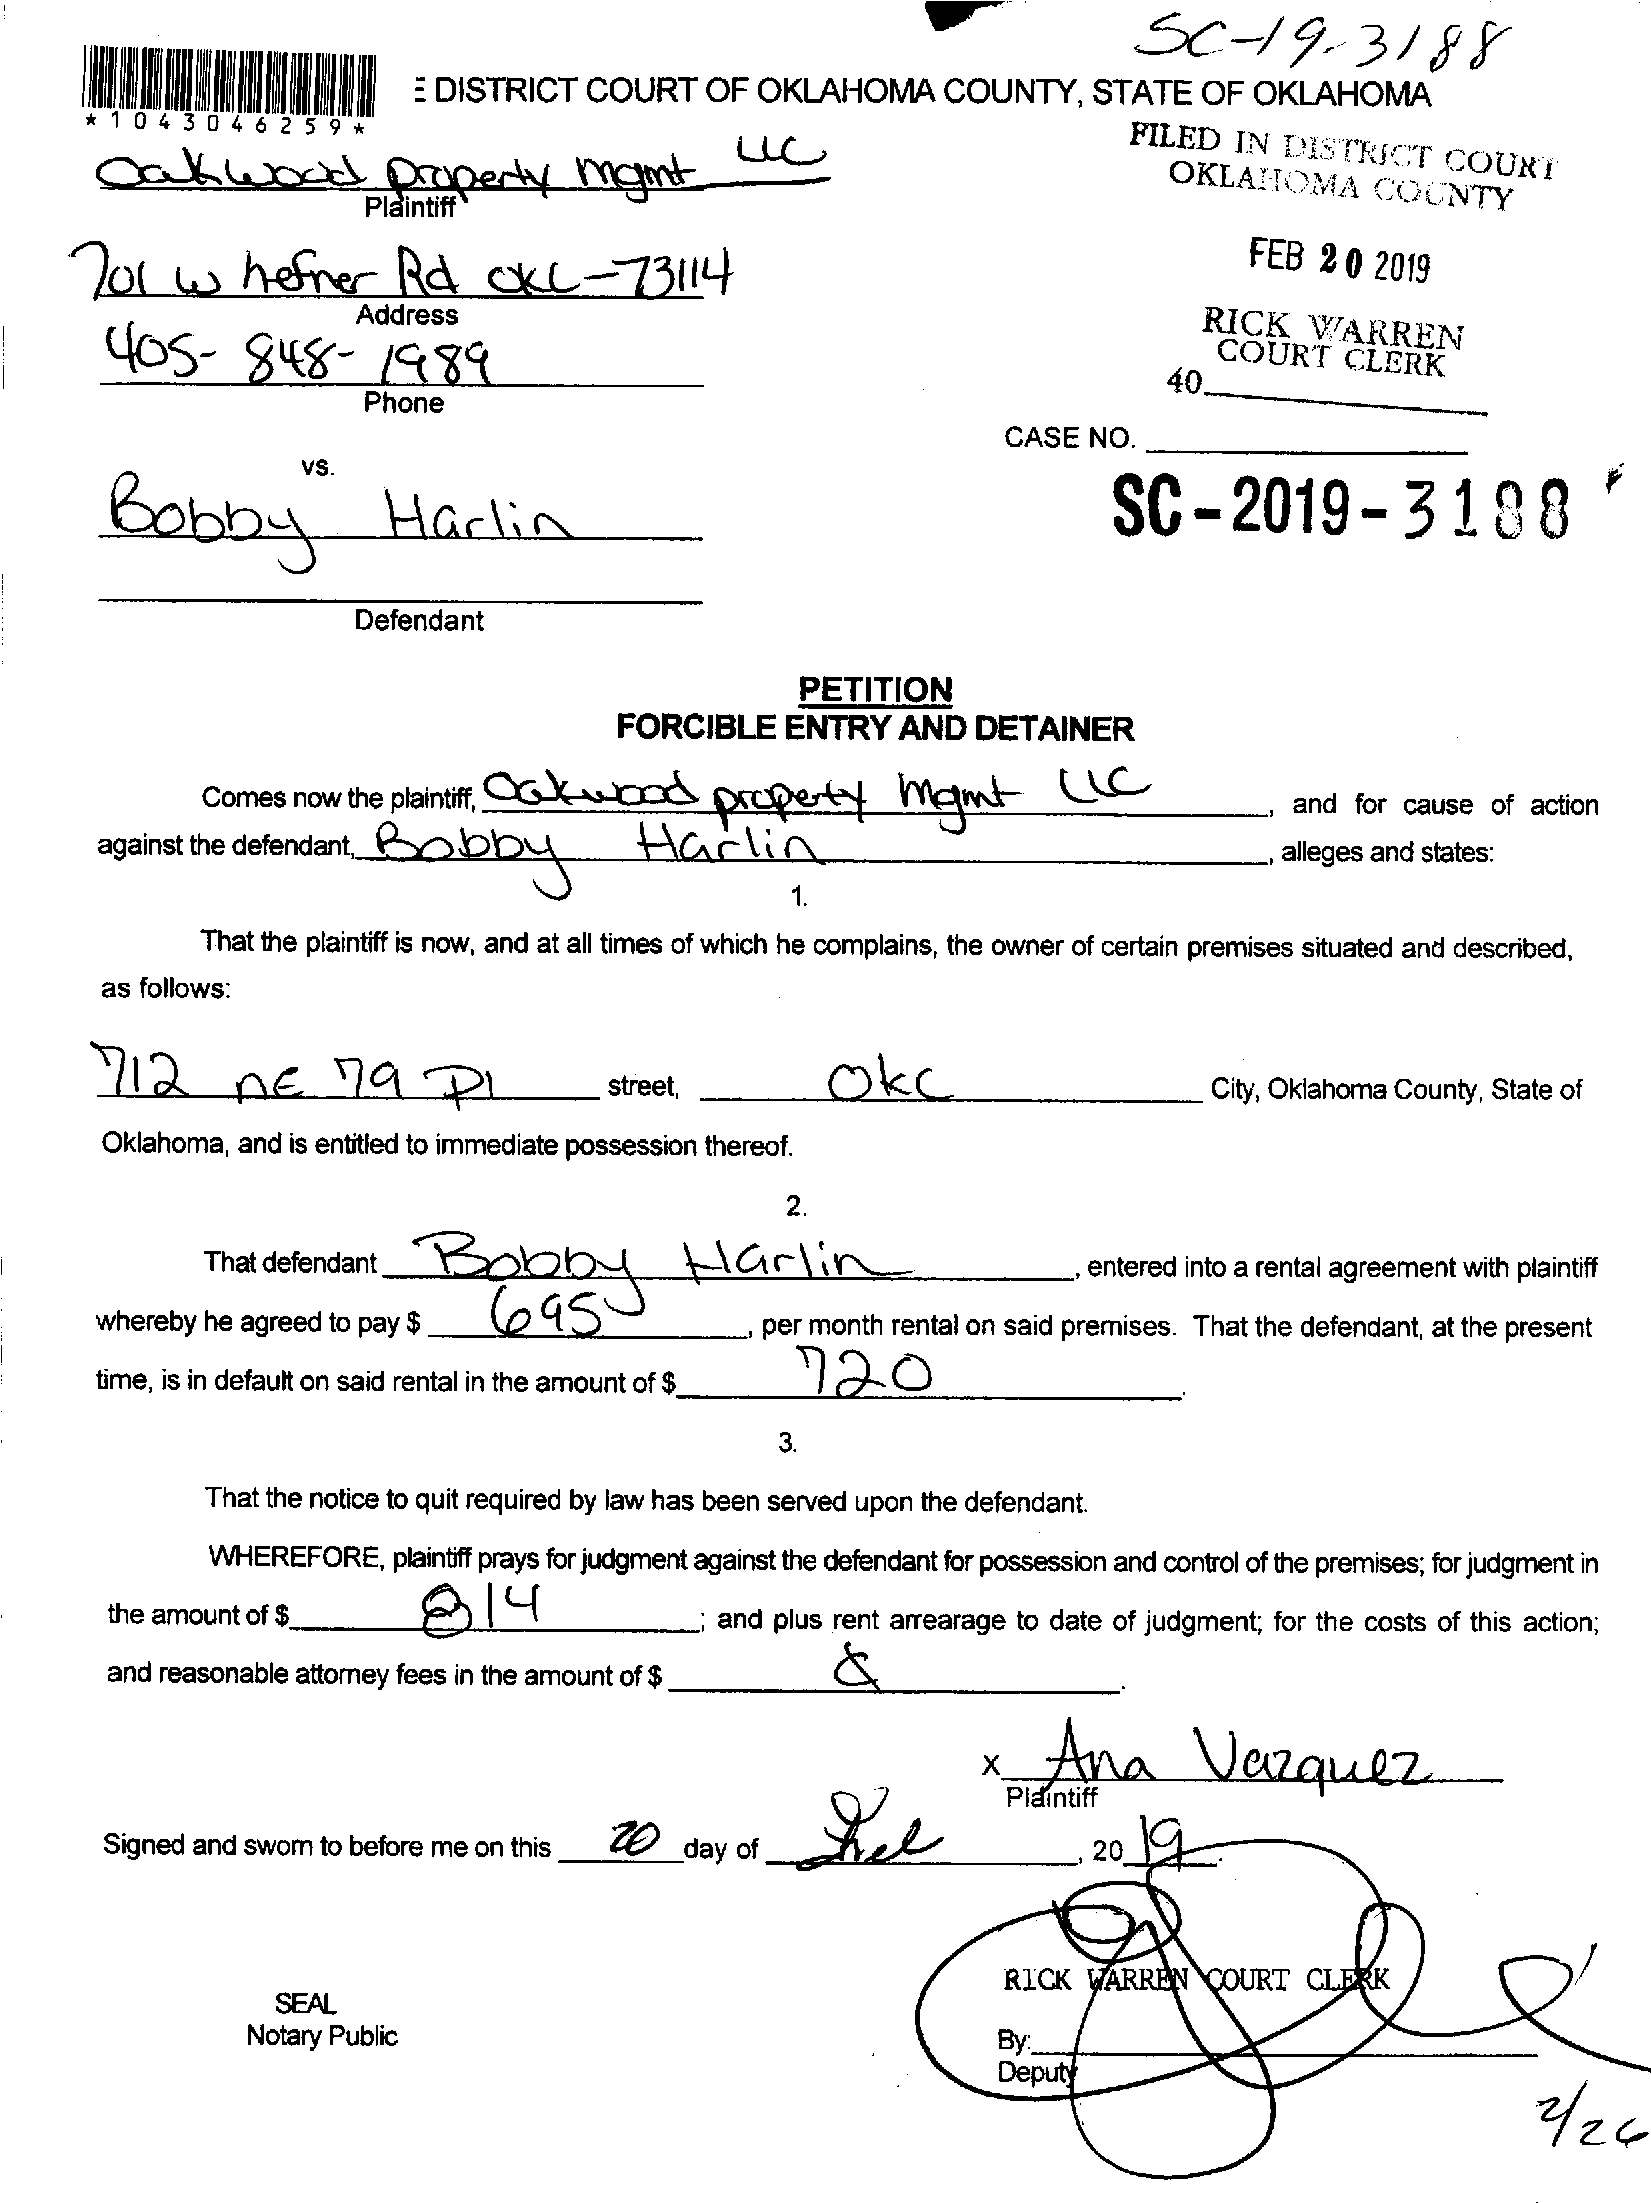 SC-19-3188
E DISTRICT COURT OF OKLAHOMA COUNTY, STATE OF OKLAHOMA
*1043046259*
FILED IN DISTRICT COURT
OKLAHOMA COUNTY
Oakwood property mgmt LLC
Plaintiff
FEB 20 2019
701 W hefner Rd OKC-73114
Address
RICK WARREN
COURT CLERK
405-848-1989
40
Phone
CASE NO.
vs.
SC-2019-3188
Bobby Harlin
Defendant
PETITION
FORCIBLE ENTRY AND DETAINER
Comes now the plaintiff, Oakwood property Mgmt LLC, and for cause of action
against the defendant, Bobby Harlin, alleges and states:
1.
That the plaintiff is now, and at all times of which he complains, the owner of certain premises situated and described,
as follows:
712 NE 79 Pl street, OKC City, Oklahoma County, State of
Oklahoma, and is entitled to immediate possession thereof.
2.
That defendant Bobby Harlin, entered into a rental agreement with plaintiff
whereby he agreed to pay $ 695, per month rental on said premises. That the defendant, at the present
time, is in default on said rental in the amount of $ 720.
3.
That the notice to quit required by law has been served upon the defendant.
WHEREFORE, plaintiff prays for judgment against the defendant for possession and control of the premises; for judgment in
the amount of $ 814; and plus rent arrearage to date of judgment; for the costs of this action;
and reasonable attorney fees in the amount of $
x Ana Vazquez
Plaintiff
Signed and sworn to before me on this 20 day of Feb, 2019.
RICK WARREN COURT CLERK
SEAL
Notary Public
By:
Deputy
2/26